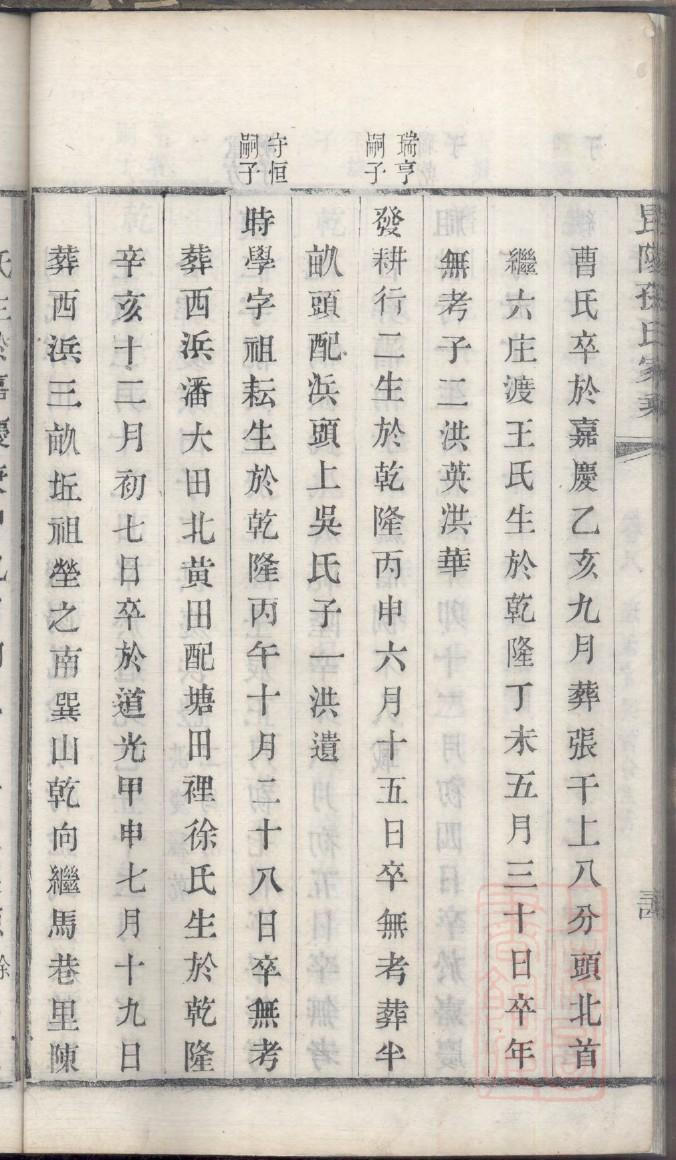 毘陵孫氏家乘
曹氏卒於嘉慶乙亥九月葬張干上八分頭北首
繼六庄渡王氏生於乾隆丁未五月三十日卒年
無考子二洪英洪華
瑞亨
嗣子
發耕行二生於乾隆丙申六月十五日卒無考葬半
畝頭配浜頭上吳氏子一洪遺
守恒
嗣子
時學字祖耘生於乾隆丙午十月二十八日卒無考
葬西浜潘大田北黃田配塘田裡徐氏生於乾隆
辛亥十二月初七日卒於道光甲申七月十九日
葬西浜三畝坵祖塋之南巽山乾向繼馬巷里陳